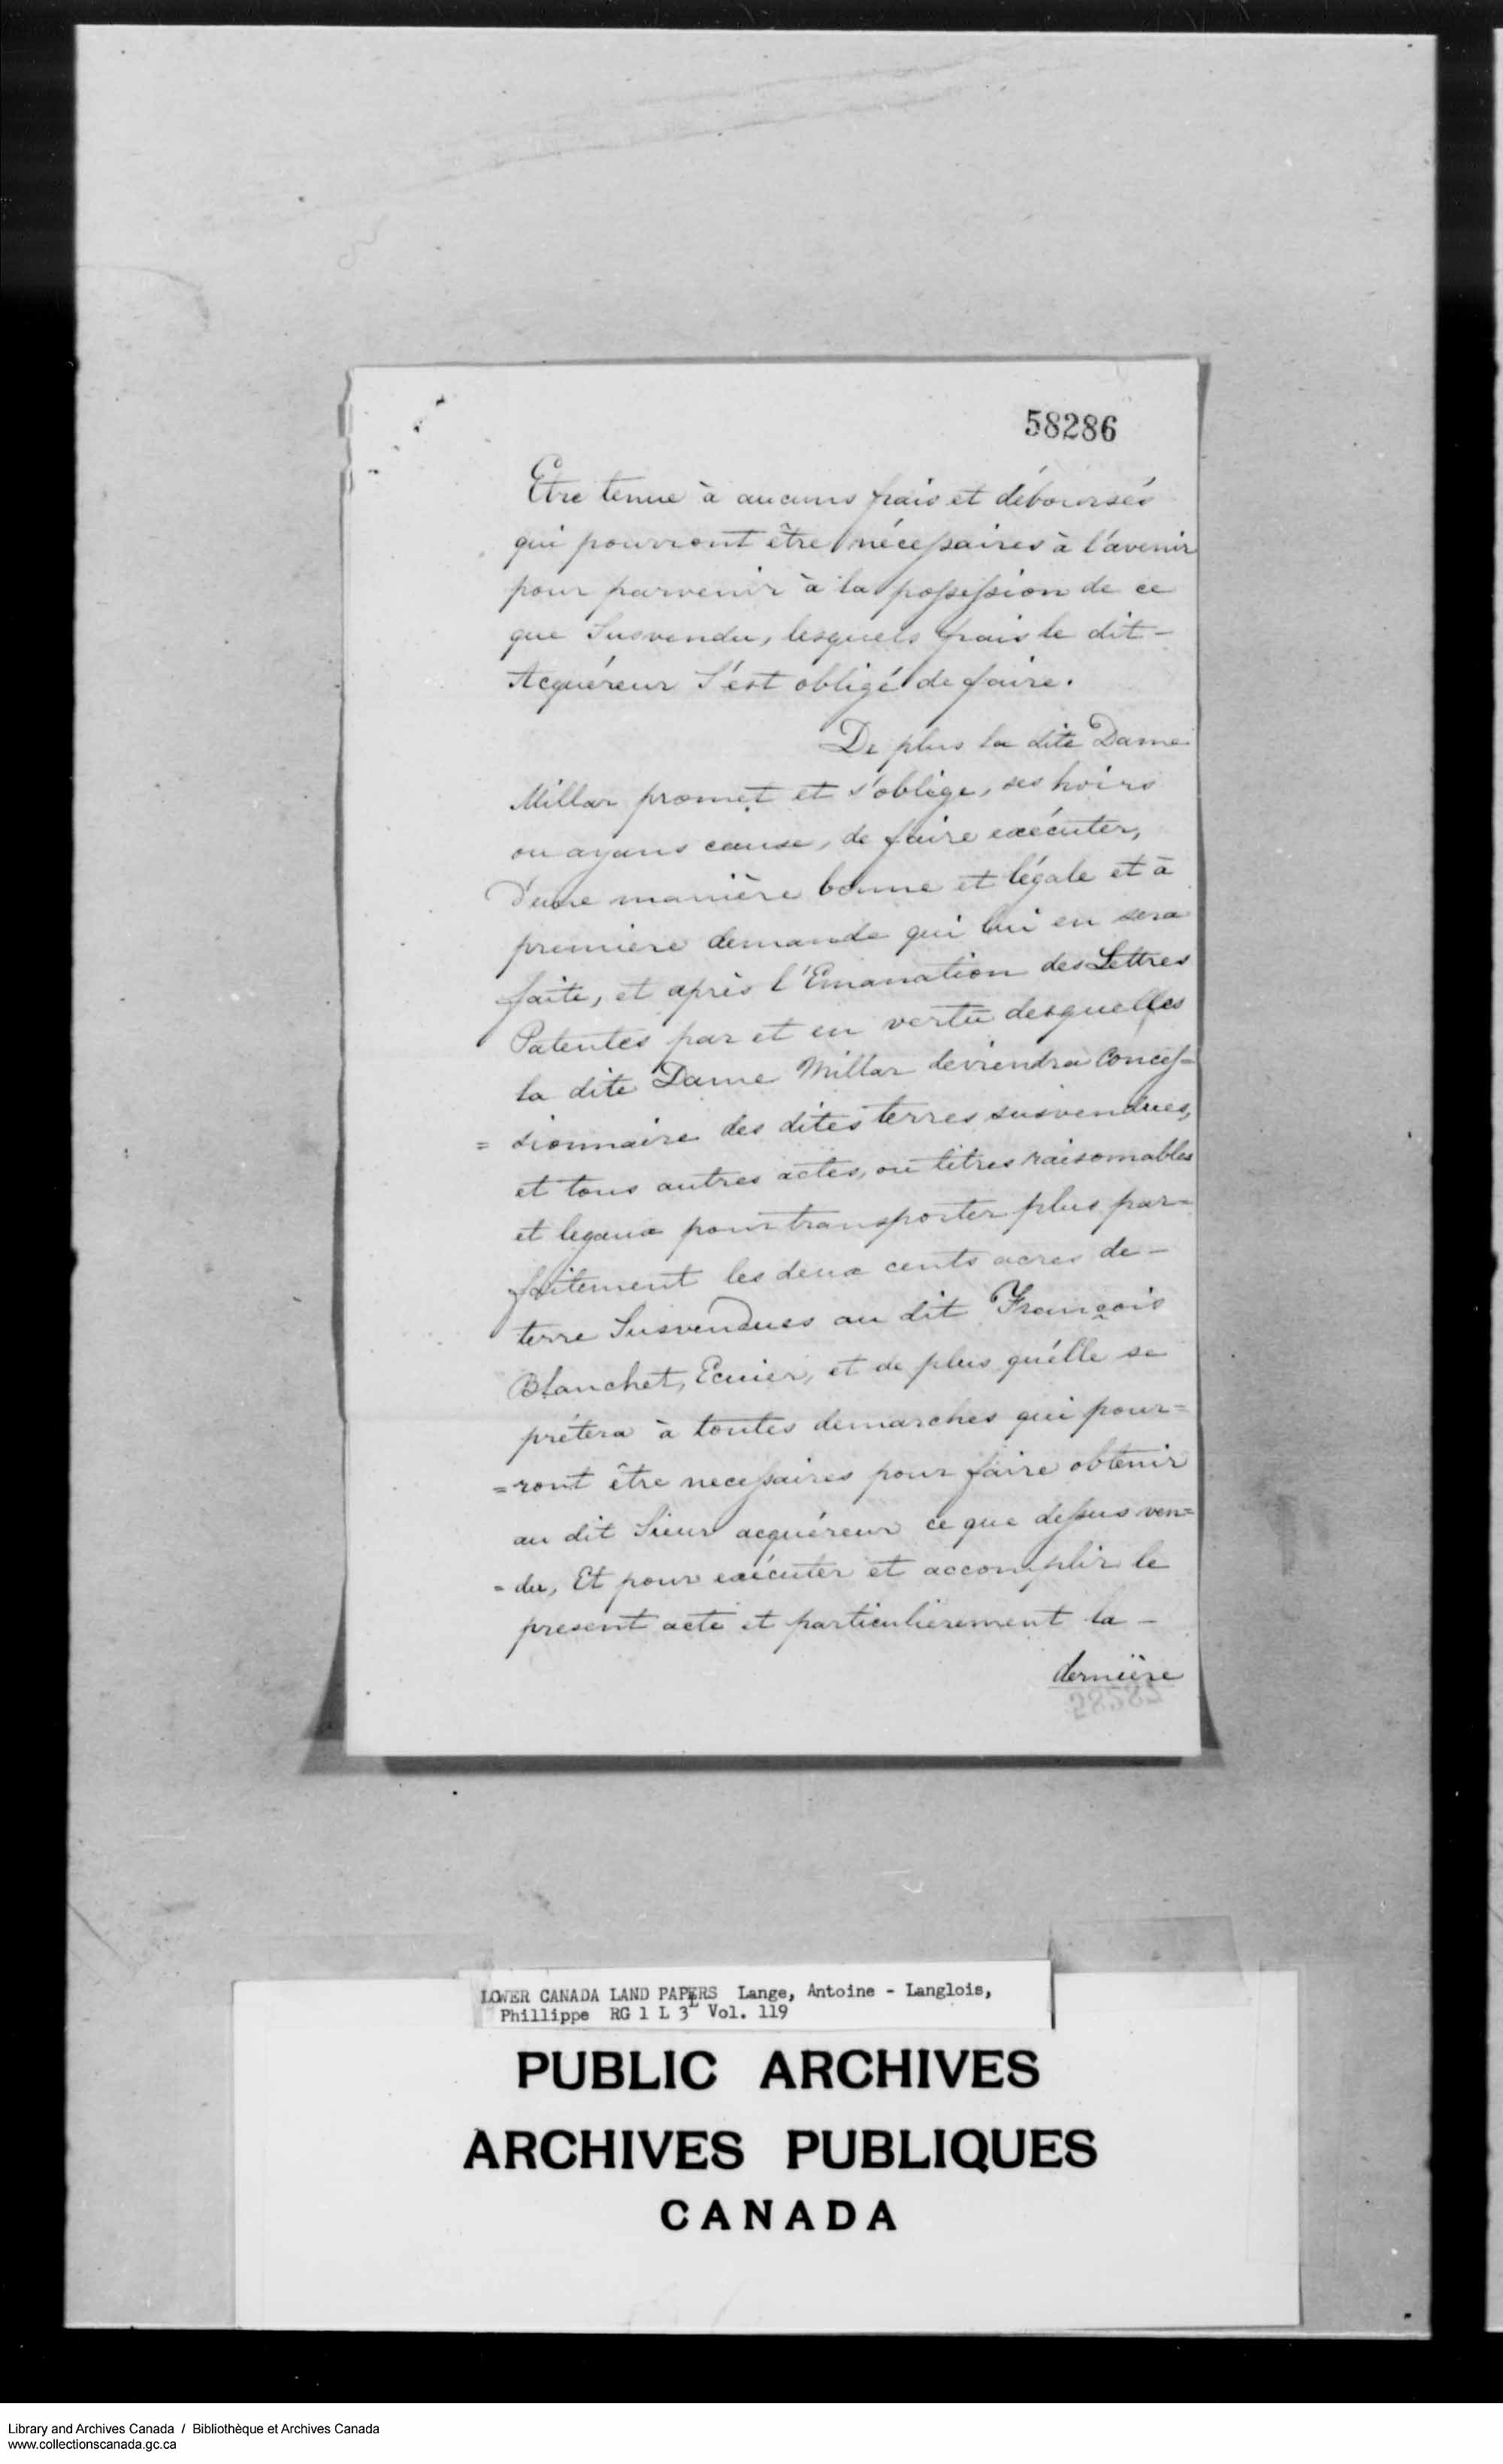 58286
Etre tenue à aucuns frais et déboursés
qui pourront être nécessaires à l'avenir
pour parvenir à la possession de ce
que Susvendu, lesquels frais le dit -
Acquéreur S'est obligé de faire.
De plus la dite Dame
Millar promet et s'oblige, ses hoirs
ou ayans cause, de faire exécuter,
D'une manière bonne et légale et à
premiere demande qui lui en sera
faite, et après l'Emanation des Lettres
Patentes par et en vertu desquelles
la dite Dame Millar deviendra Conces=
=sionnaire des dites terres susvendues,
et tous autres actes, ou titres raisonnables
et legaux pour transporter plus par=
faitement les deux cents acres de -
terre Susvendues au dit François
Blanchet, Ecuier, et de plus qu'élle se
prétera à toutes demarches qui pour=
=ront être necessaires pour faire obtenir
au dit Sieur acquéreur ce que dessus ven=
=du, Et pour exécuter et accomplir le
present acte et particulierement la -
dernière
58285
LOWER CANADA LAND PAPERS Lange, Antoine - Langlois,
Phillippe RG 1 L 3L Vol. 119
PUBLIC ARCHIVES
ARCHIVES PUBLIQUES
CANADA
Library and Archives Canada / Bibliothèque et Archives Canada
www.collectionscanada.gc.ca